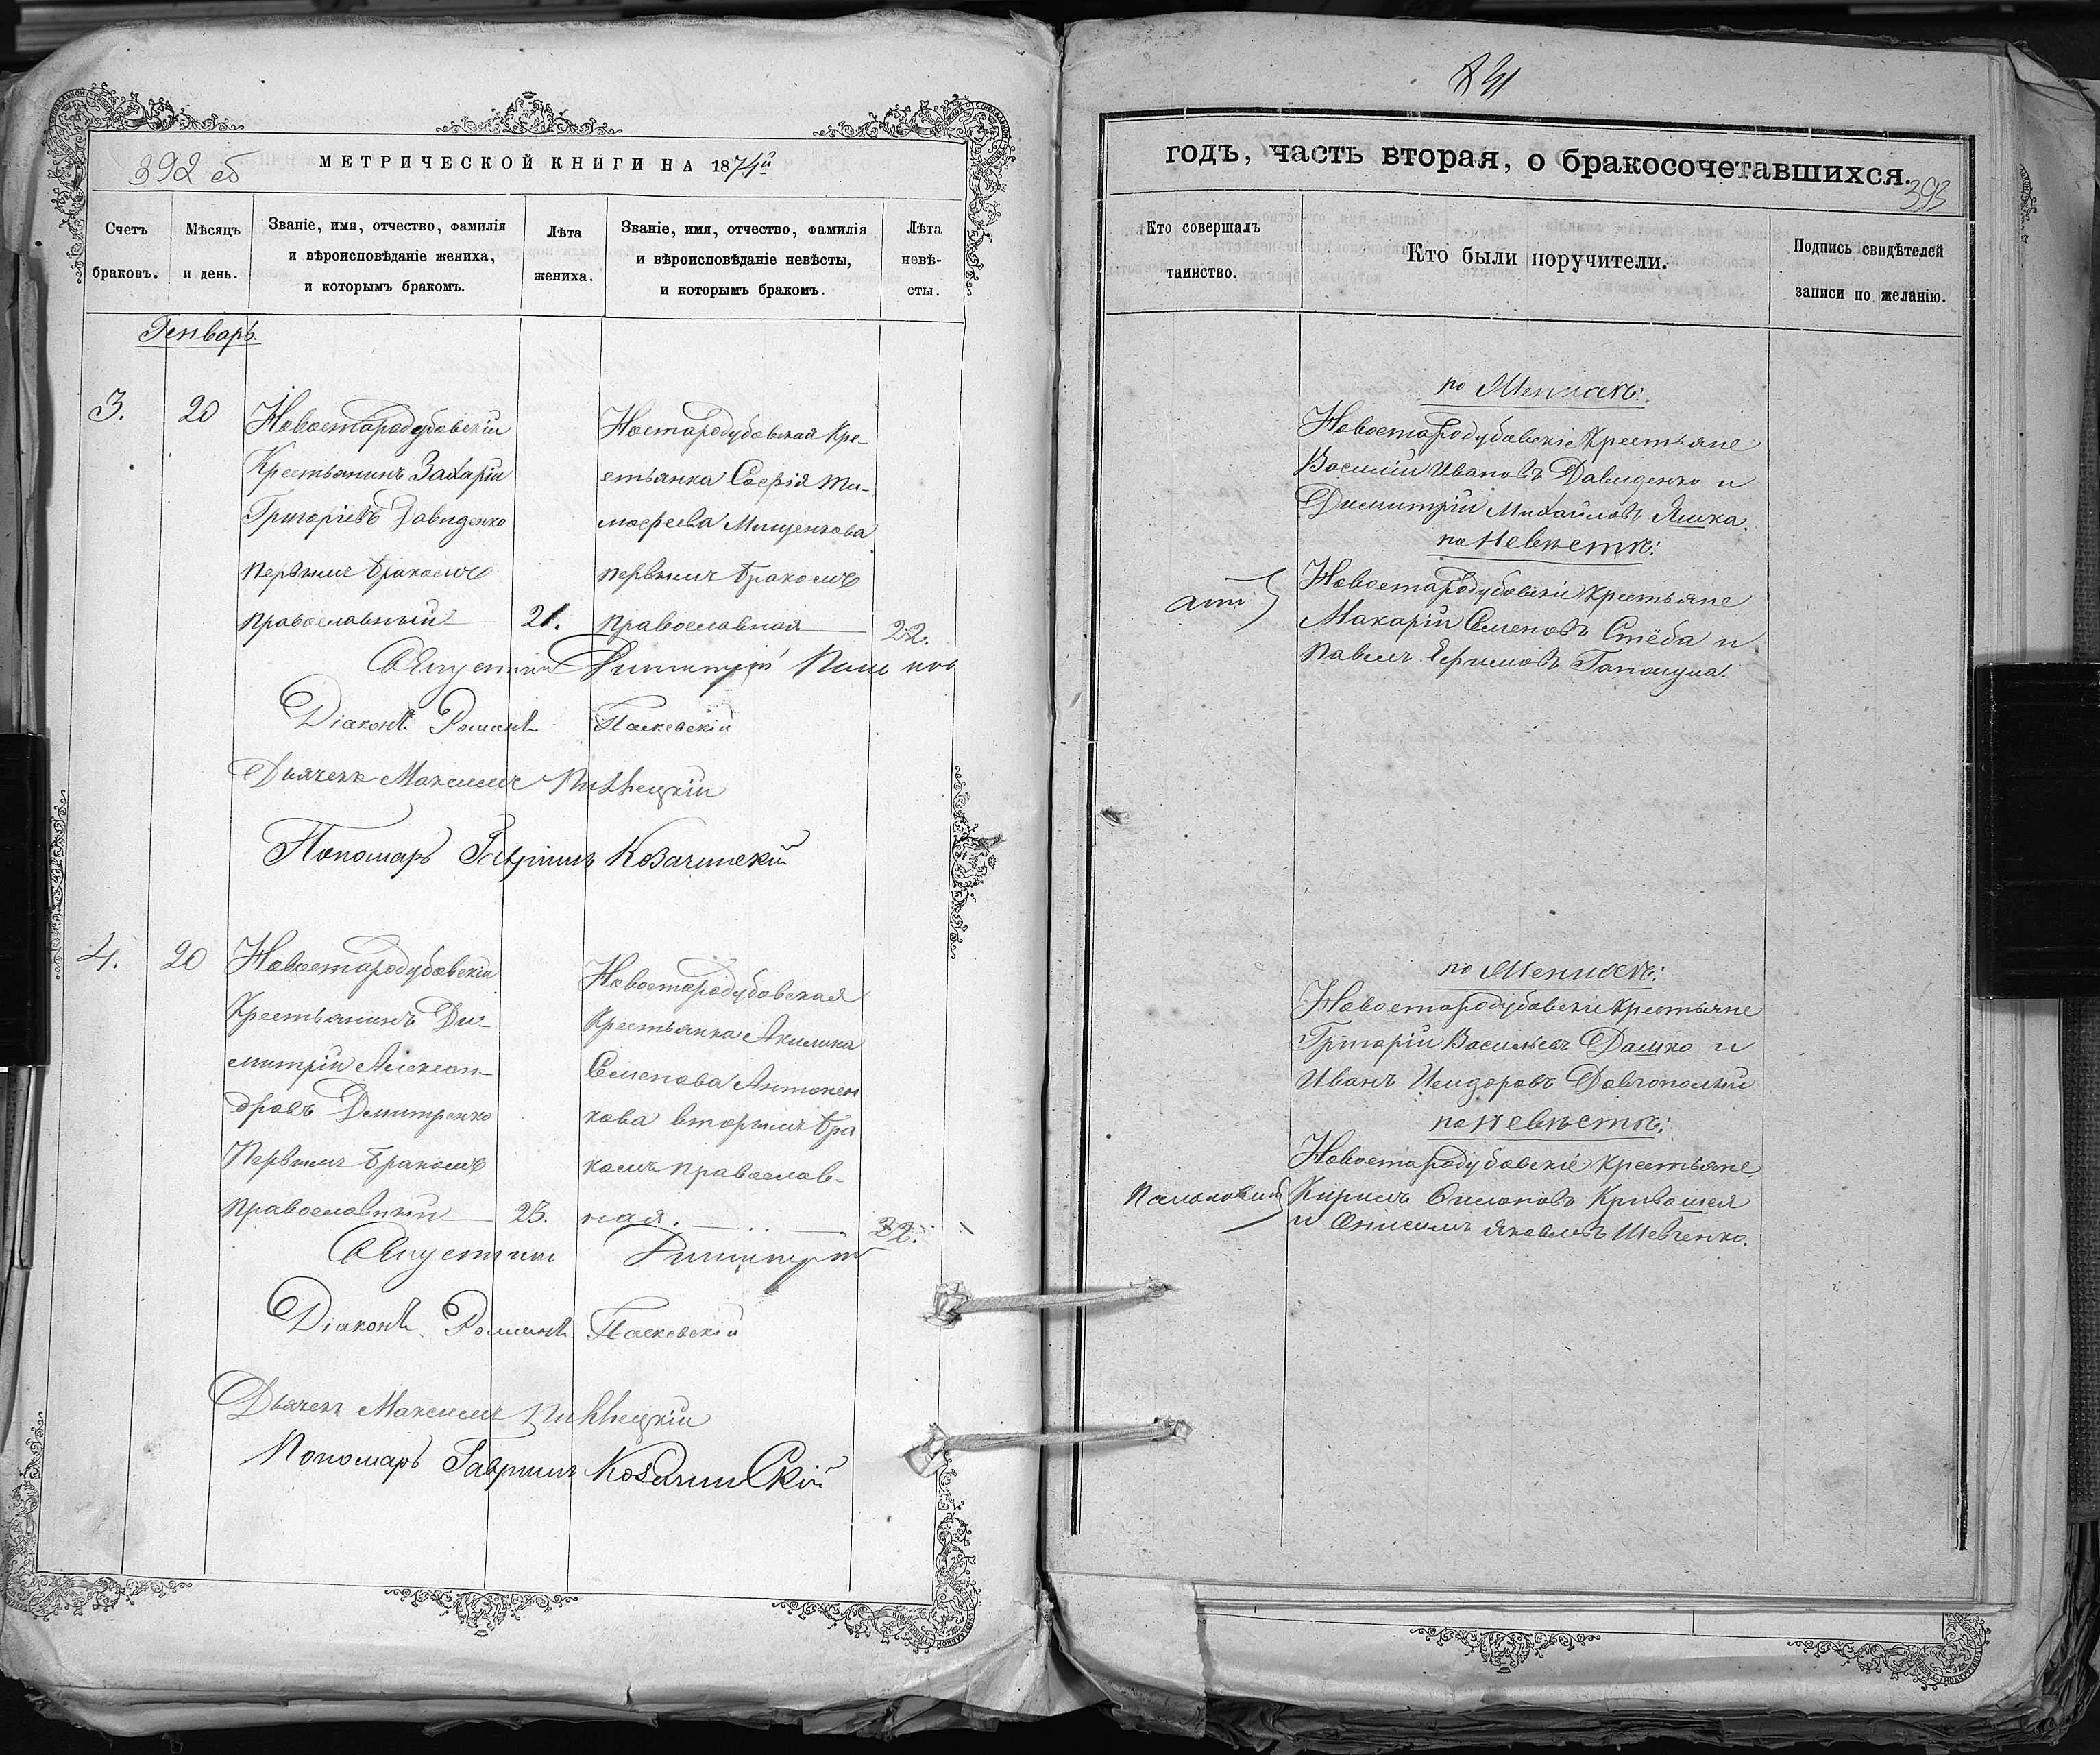 392 об
МЕТРИЧЕСКОЙ КНИГИ НА 1874й
Счетъ браковъ.
Мѣсяцъ и день.
Званіе, имя, отчество, фамилія
и вѣроисповѣданіе жениха,
и которымъ бракомъ.
Лѣта жениха.
Званіе, имя, отчество, фамилія
и вѣроисповѣданіе невѣсты,
и которымъ бракомъ.
Лѣта невѣ-
сты.
Генварь.
3.
20
Новостародубовскій
Крестьянинъ Захарій
Григоріевъ Давиденко
первымъ бракомъ
православный
21.
Ностародубовская Кре-
стьянка Софія Ти-
мофеева Мищенкова
первымъ бракомъ
православная
22.
Діаконъ Романъ Паскевскій
Дьячекъ Максимъ
Пономарь Гавріилъ Козачинскій
4.
20
Новостародубовскій
Крестьянинъ Ди-
митрій Алексан-
дровъ Дмитренко
Первымъ бракомъ
православный
23.
Новостародубовская
Крестьянка Акилина
Семенова Антонен
кова вторымъ бра
комъ православ-
ная.
22.
Діаконъ Романъ Паскевскій
Дьячекъ Максимъ
Пономарь Гавріилъ Козачинскій
годъ, часть вторая, о бракосочетавшихся.
393
Кто совершалъ
таинство.
Кто были поручители.
Подпись свидѣтелей
записи по желанію.
по Женихѣ:
Новостародубовскіе Крестьяне
Василій Ивановъ Давиденко и
Димитрій Михайловъ Яшка.
по Невѣстѣ:
Новостародубовскіе Крестьяне
Макарій Семеновъ Стёба и
Павелъ Ефимовъ
по Женихѣ:
Новостародубовскіе Крестьяне
Григорій Васильевъ Дашко и
Иванъ Исидоровъ Довгополый
по Невѣстѣ:
Новостародубовскіе Крестьяне
Кирилъ Кривошея
и Онисимъ Яковлевъ Шевченко.